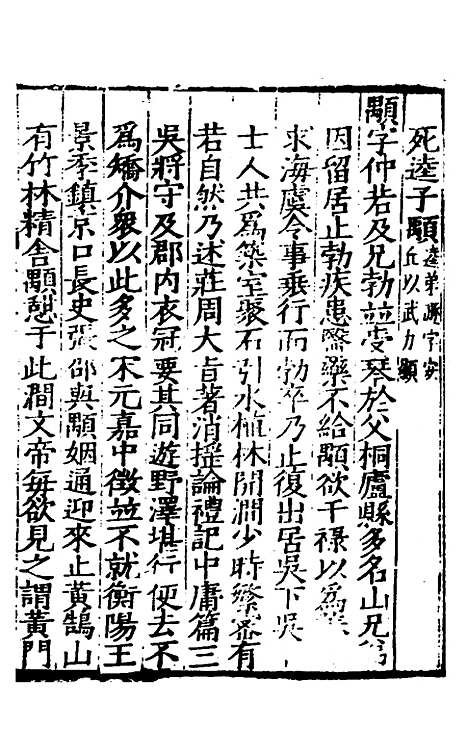 死逵子顒逵弟逯字安丘以武力顯
顒字仲若及兄勃並受琴於父桐廬縣多名山兄弟
因留居止勃疾患醫藥不給顒欲干祿以為
求海虞令事乗行而勃卒乃止復出居吳下吳
士人共爲築室聚石引水植林開澗少時繁密有
若自然乃述莊周大旨著消揺論禮記中庸篇三
吳將守及郡内衣冠要其同遊野澤堪行便去不
爲矯介衆以此多之宋元嘉中徵並不就衡陽王
景季鎮京口長史張邵與顒姻通迎來止黄鵠山
有竹林精舍顒憇于此澗文帝毎欲見之謂黄門